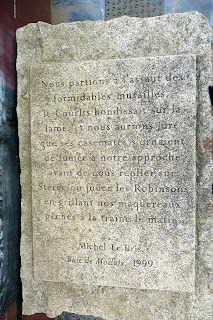 Nous partions à l'assaut des
formidables murailles,
le Courlis bondissait sur la
lame, et nous aurions juré
que ses casemates s'ornaient
de fumée à notre approche
avant de nous replier sur
Sterec ou jouer les Robinsons
en grillant nos maquereaux
pêchés à la traîne le matin.
Michel Le Bris
Baie de Morlaix, 1999